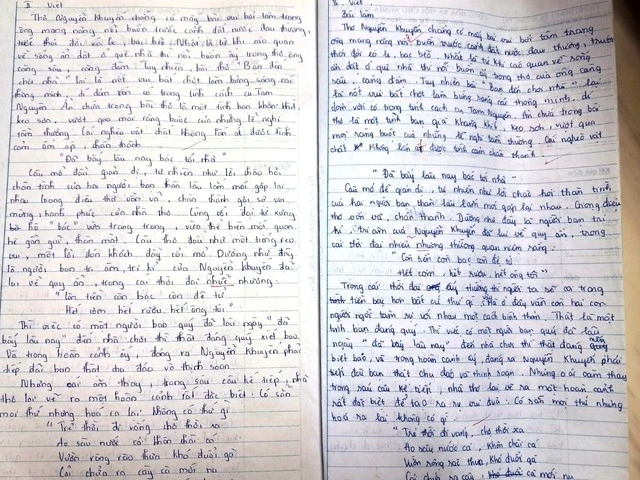 II Viết
Thơ Nguyễn Khuyến chẳng có mấy bài vui bởi tâm trạng
ông mang nặng nỗi buồn trước cảnh đất nước đau thương,
trước thói đời xô lệ, bạc bẽo. Nhất là từ khi cáo quan
về sống ẩn dật ở quê nhà thì nỗi buồn ấy trong thơ ông
càng sâu, càng đậm. Tuy nhiên bài thơ "Bạn đến
chơi nhà" lại là nét vui bất chợt làm bừng sáng cái
thông minh, dí dỏm vốn có trong tính cách cụ Tam
Nguyên. Ẩn chứa trong bài thơ là một tình bạn khăng khít,
keo sơn, vượt qua mọi ràng buộc của những lễ nghi
tầm thường. Cái nghèo vật chất không lấn át được tình
cảm ấm áp, chân thành.
"Đã bấy lâu nay bác tới nhà"
Câu mở đầu giản dị, tự nhiên như lời chào hỏi
chân tình của hai người bạn thân lâu lắm mới gặp lại
nhau. Giọng điệu thơ vồn vã,
mừng hạnh phúc của nhà thơ. Cùng với đại từ xưng
hô "bác" vừa trang trọng, vừa thể hiện mối quan
hệ gần gũi, thân mật. Câu thơ đầu như một tiếng reo
vui, một lời đón khách đầy cởi mở. Dường như đây
là người bạn tri âm, tri kỉ của Nguyễn Khuyến đã
lại về quy ẩn, trong cái thời đại nhiễu nhương.
"Còn tiền còn bạc còn đệ tử
Hết cơm hết rượu, hết ông tôi"
Thì việc có một người bạn quý đã lâu ngày "đã
bấy lâu nay" đến nhà chơi thì thật đáng quý biết bao.
Và trong hoàn cảnh ấy, đáng ra Nguyễn Khuyến phải
tiếp đãi bạn thật chu đáo và thịnh soạn.
Nhưng cái oái oăm thay, trong sáu câu kế tiếp, nhà
thơ lại vẽ ra một hoàn cảnh rất đặc biệt. Có sẵn
mọi thứ nhưng hoá ra lại không có thứ gì
"Trẻ thời đi vắng chợ thời xa
Ao sâu nước cả khôn chài cá
Vườn rộng rào thưa khó đuổi gà
Cải chửa ra cây cà mới nụ
II. Viết
Bài làm
Thơ Nguyễn Khuyến chẳng có mấy bài vui bởi tâm trạng
ông mang nặng nỗi buồn trước cảnh đất nước đau thương, trước
thời đời xô lệ, bạc bẽo. Nhất là từ khi cáo quan về sống
ẩn dật ở quê nhà thì nỗi buồn ấy trong thơ của ông càng
sâu, càng đậm. Tuy nhiên bài "Bạn đến chơi nhà" lại
là nét vui bất chợt làm bừng sáng cái thông minh, dí
dỏm vốn có trong tính cách cụ Tam Nguyên. Ẩn chứa trong bài
thơ là một tình bạn khăng khít, keo sơn, vượt qua
mọi ràng buộc của những lễ nghi tầm thường. Cái nghèo vật
chất không lấn át được tình cảm chân thành.
"Đã bấy lâu nay bác tới nhà"
Câu mở đề giản dị, tự nhiên như lời chào hỏi thân tình
của hai người bạn thân lâu lắm mới gặp lại nhau. Giọng điệu
thơ vồn vã, chân thành. Dường như đây là người bạn tri
kỉ, tri âm của Nguyễn Khuyến đã lại về quy ẩn, trong
cái thời đại nhiễu nhương
"Còn tiền còn bạc còn đệ tử
Hết cơm, hết rượu, hết ông tôi"
Trong cái thời đại ấy thường thì người ta sẽ coi trọng
tiền bạc hơn bất cứ thứ gì. Mà ở đây vẫn còn hai con
người ngồi tâm sự với nhau một cách bình thản. Thật là một
tình bạn đáng quý. Thì việc có một người bạn quý đã lâu
ngày "đã bấy lâu nay" đến nhà chơi thì thật đáng mừng
biết bao, và trong hoàn cảnh ấy, đáng ra Nguyễn Khuyến phải
tiếp đãi bạn thật chu đáo và thịnh soạn. Nhưng cái oái oăm thay
trong sáu câu kế tiếp, nhà thơ lại vẽ ra một hoàn cảnh
rất đặc biệt để tạo ra sự vui đùa. Có sẵn mọi thứ nhưng
hoá ra lại không có gì.
"Trẻ thời đi vắng, chợ thời xa
Ao sâu nước cả, khôn chài cá
Vườn rộng rào thưa, khó đuổi gà
Cải chửa ra cây, cà mới nụ